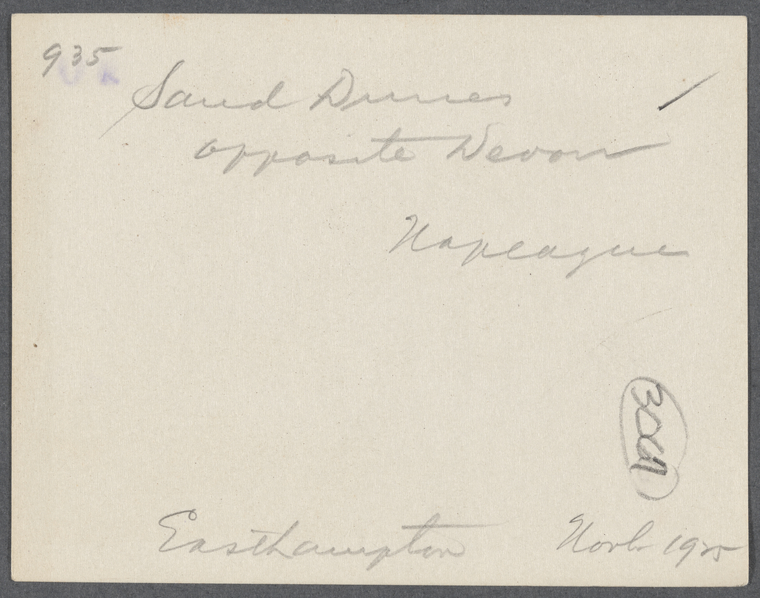 935
Sand Dunes
opposite Devon
Napeague
Easthampton Nov. 1925